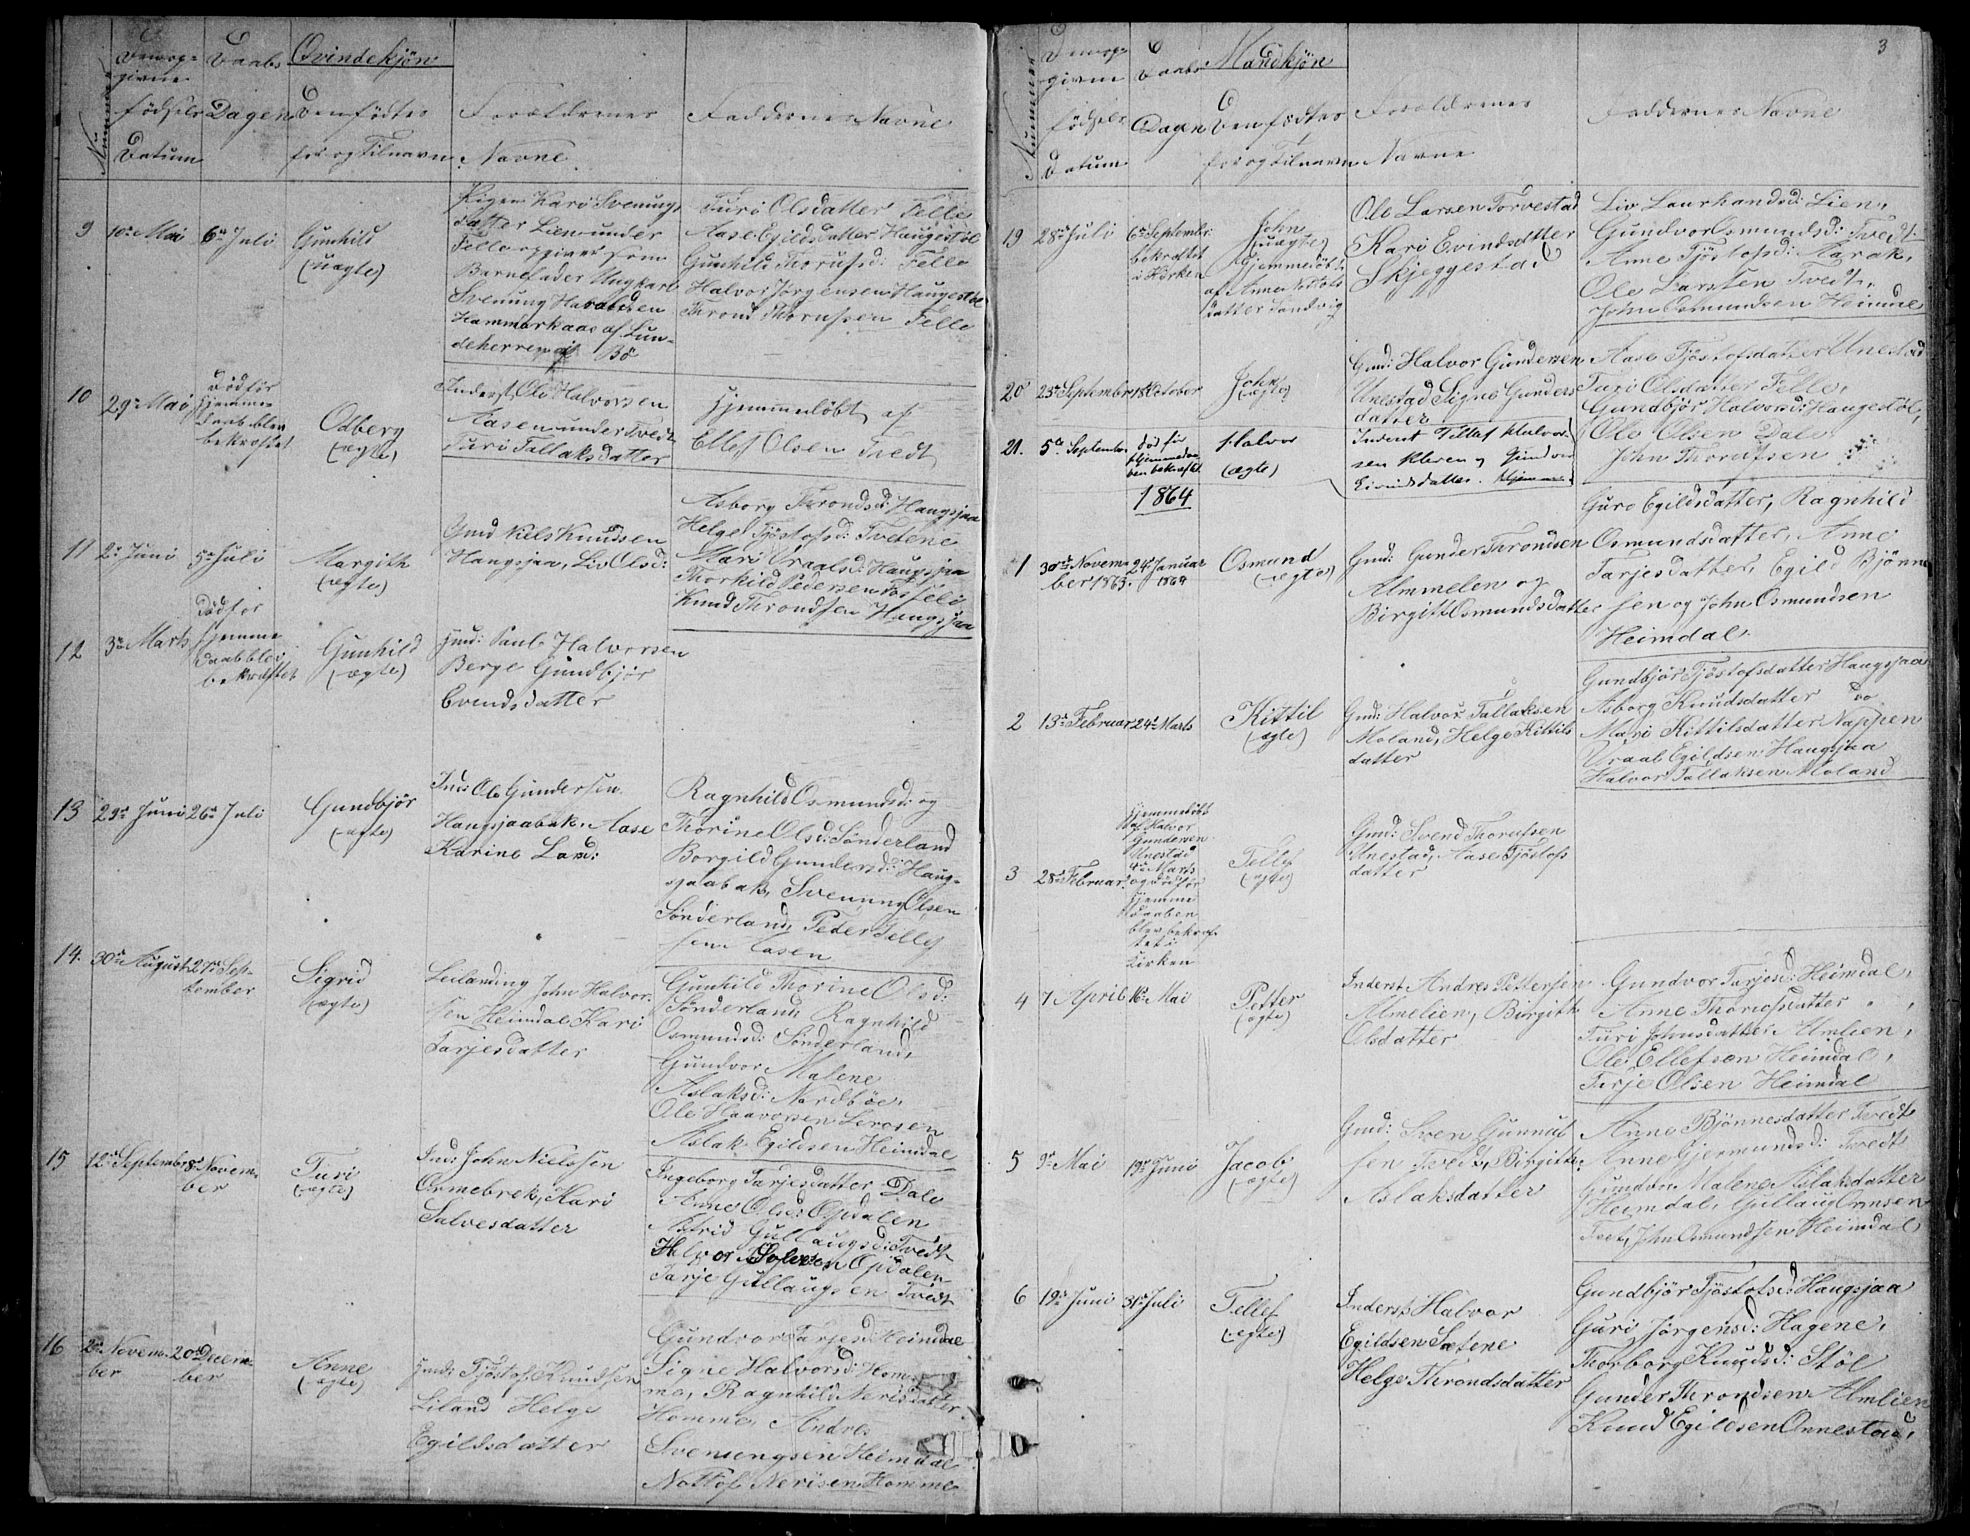 Qvindekjön
Nummer
Den op-
givne
födsels
Datum
Daabs
Dagen
Den födtes
for og Tilnavn
Forældrenes
Navne
Faddernes Navne
9
10de Mai
6te Juli
Gunhild
(uægte)
Pigen Kari Svenungs
datter Lien under
Felle opgiver som
Barnefader Ungkarl
Svenung Haraldsen
Hammerhaas af Lun-
deherred af Bö
Turi Olsdatter Felle
Aase Egildsdatter Haugestöl
Gunhild Thorufsd: Felle
Halvor Jörgensen Haugestöl
Thrond Thorufsen Felle
10
29de Mai
Död för
Hjemme
Daab blev
bekræftet
Odberg
(ægte)
Inderst Ole Halvorsen
Aasen under Tvedt
Turi Tallaksdatter
Hjemmedöbt af
Ellef Olsen Tvedt
11
2de Juni
5te Juli
Margith
(ægte)
Gmd Niels Knudsen
Haugsjaa, Liv Olsd:
Asborg Throndsd: Haugsjaa
Helge Tjöstofsd: Tvetene
Mari Vraalsd: Haugsjaa
Thorkild Pedersen Fosseli
Knud Throndsen Haugsjaa
12
3de Marts
Död for
Hjemme
daab blev
bekræftet
Gunhild
(ægte)
Gmd: Paul Halvorsen
Berge Gundbjör
Evendsdatter
13
29de Juni
26de Juli
Gundbjör
(ægte)
Ind: Ole Gundersen
Haugsjaabak, Aase
Karine Lard:
Ragnhild Osmundsd: og
Thorine Olsd: Sönderland
Borgild Gundersd: Haug-
sjaabak, Svenung Olsen
Sönderland, Peder Tellef
sen Aasen
14.
30te August
27de Sep-
tember
Sigrid
(ægte)
Leilænding John Halvor-
sen Heimdal Kari
Tarjesdatter
Gunhild Thorine Olsd:
Sönderland, Ragnhild
Osmundsd: Sönderland,
Gundvor Malene
Aslaksd: Nordböe,
Ole Haavorsen
Aslak Egildsen Heimdal
15
12te September
8de Novem-
ber
Turi
(ægte)
Ind: John Nielssen
Ormebrek, Kari
Salvesdatter
Ingeborg Tarjesdatter Dale
Anne Olsd: Opdalen
Astrid Gullaugsd: Tvedt
Halvor Salvesen Opdalen
Tarje Gullaugsen Tvedt
16
2de Novem-
ber
20de Decem-
ber
Anne
(ægte)
Gmd: Tjöstof Knudsen
Liland Helge
Egildsdatter
Gundvor Tarjesd: Heimdal
Signe Halvorsd: Hom-
me, Ragnhild Nerisdatter
Homme, Andres
Svenungsen Heimdal
Nottof Nerisen Homme
3
Mandkjön
Nummer
Den op-
givne
födsels
Datum
Daabs
Dagen
Den födtes
for og Tilnavn
Forældrenes
Navne
Faddernes Navne
19
28de Juli
6te Septembr:
bekræftet
i Kirken
John
(uægte)
Hjemmedöbt
af Anne Nottofs
datter Sandvig
Ole Larsen Torvestad
Kari Evindsdatter
Skjeggestad
Liv Laurhandsd: Lien,
Gundvor Osmundsd: Tvedt
Anne Tjöstofsd: Aarak,
Ole Larsten Tvedt,
John Osmundsen Heimdal
20
23de September
18de October
John
(ægte)
Gmd: Halvor Gundersen
Unestad Signe Gunders
datter
Aase Tjöstofsdatter Unestad
Turi Olsdatter Felle,
Gundbjör Halvorsd: Haugestöl,
Ole Olsen Dale
John Thorufsen
21.
5te September
död för
Hjemmedaa-
ben bekræftet
Halvor
(ægte)
Inderst Tellef Halvor-
sen Kleven og Gundvor
Eivindsdatter.
1864
1
30te Novem-
ber 1863.
24de Januar
1864
Osmund
(ægte)
Gmd: Gunder Throndsen
Almmelen og
Birgith Osmundsdatter
Guro Egildsdatter, Ragnhild
Osmundsdatter, Anne
Tarjesdatter, Egild Bjönn-
sen og John Osmundsen
Heimdal.
2
13de Februar
24de Marts
Kittil
(ægte)
Gmd: Halvor Tallaksen
Moland, Helge Kittils
datter
Gundbjör Tjöstofsdatter Haugsjaa
Asborg Knudsdatter do
Mari Kittilsdatter Nappen
Vraal Egildsen Haugsjaa
Halvor Tallaksen Moland
3
28de Februar
Hjemmedöbt
af Halvor
Gundersen
Unestad
4de Marts
og död för
Hjemme
Daaben
blev bekræf-
tet i
Kirken
Tellef
(ægte)
Gmd: Svend Thorufsen
Unestad, Aase Tjöstofs
datter
4
7 April
16de Mai
Petter
(ægte)
Inderst Andres Pettersen
Almelien, Birgith
Olsdatter
Gundvor Tarjesd: Heimdal,
Anne Thorufsdatter " ,
Turi Johnsdatter Almlien,
Ole Ellefsen Heimdal,
Tarje Olsen Heimdal
5
9de Mai
19de Juni
Jacob
(ægte)
Gmd: Sven Gunnul
sen Tvedt, Birgitte
Aslaksdatter
Anne Bjönnesdatter Tvedt
Anne Gjermundsd: Tvedt
Gundvor Malene Aslaksdatter
Heimdal, Gullaug Ormsen
Tvet, John Osmundsen Heimdal
6
19de Juni
31te Juli
Tellef
(ægte)
Inderst Halvor
Egildsen Sætene
Helge Throndsdatter
Gundbjör Tjöstofsd: Haugsjaa
Guri Jörgensd: Hagene,
Thorborg Knudsd: Stöl
Gunder Throndsen Almlien
Knud Egildsen Onnestad,